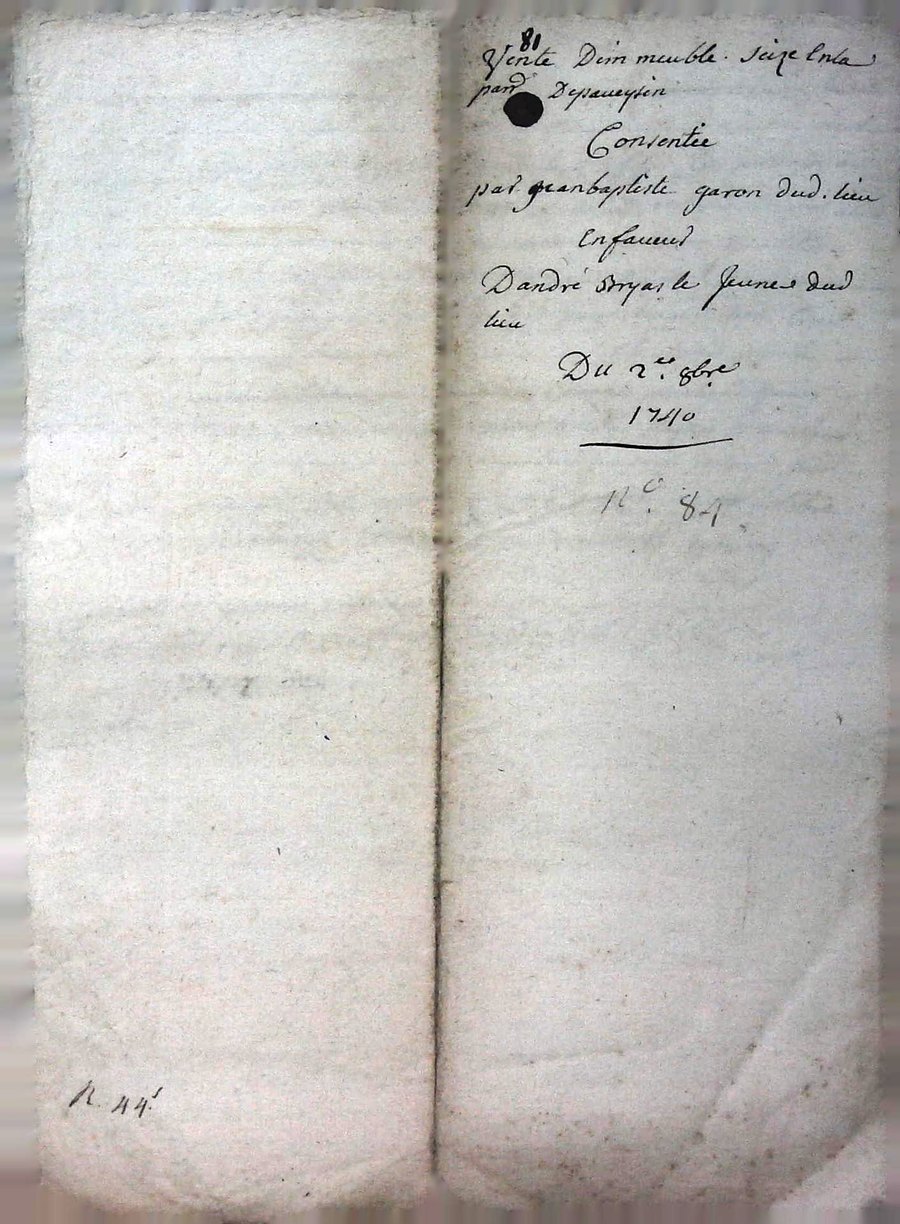 81
Vente Dim meuble. Seize Enla
parr Depaueysin
Consentie
par jeanbaptiste garon dud. lieu
Enfaueur
Dandré Bryas le Jeune dud
lieu
Du 2ee. 8bre
1740
No. 84
R. 44s